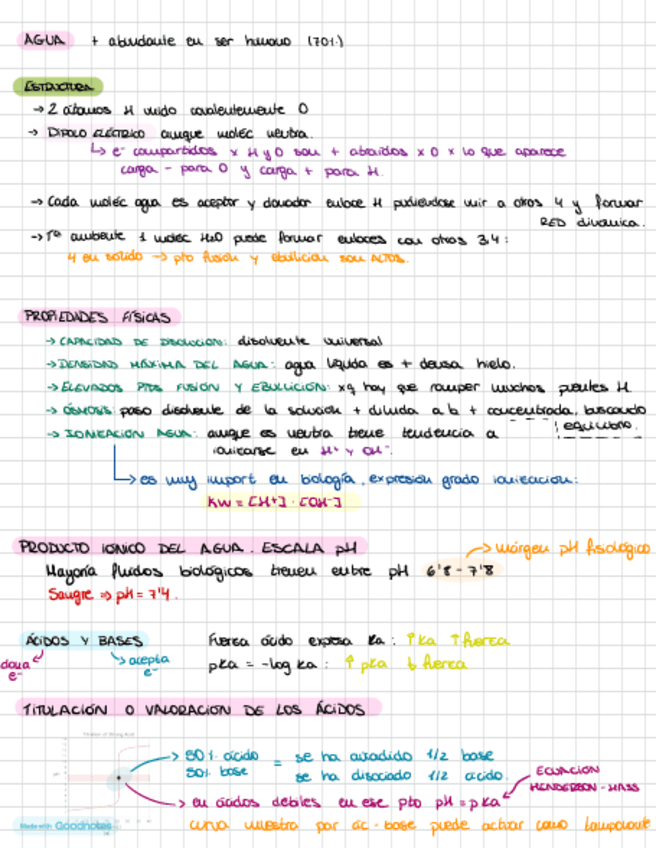 AGUA + abundante en ser humano (70%)
ESTRUCTURA
→ 2 átomos H unido covalentemente O
→ DIPOLO ELÉCTRICO aunque moléc neutra.
↳ e⁻ compartidos x H y O son + atraídos x O x lo que aparece
carga - para O y carga + para H.
→ Cada moléc agua es aceptor y donador enlace H pudiéndose unir a otros 4 y formar
RED dinámica.
→ Tª ambiente 1 moléc H2O puede formar enlaces con otros 3,4:
4 en sólido → pto fusión y ebullición son ALTOS.
PROPIEDADES FÍSICAS
→ CAPACIDAD DE DISOLUCIÓN: disolvente universal
→ DENSIDAD MÁXIMA DEL AGUA: agua líquida es + densa hielo.
→ ELEVADOS PTOS FUSIÓN Y EBULLICIÓN: xq hay que romper muchos puentes H
→ ÓSMOSIS: paso disolvente de la solución + diluida a la + concentrada, buscando
equilibrio.
→ IONIZACIÓN AGUA: aunque es neutra tiene tendencia a
ionizarse en H⁺ y OH⁻.
→ es muy import en biología, expresión grado ionización:
KW = [H+] · [OH-]
PRODUCTO IÓNICO DEL AGUA. ESCALA pH → márgen pH fisiológico
Mayoría fluidos biológicos tienen entre pH 6'8 - 7'8
Sangre ⇒ pH = 7'4.
ÁCIDOS Y BASES Fuerza ácido expresa Ka: ↑Ka ↑fuerza
dona e⁻ acepta e⁻ pKa = -log Ka: ↑ pKa ↓ fuerza
TITULACIÓN O VALORACIÓN DE LOS ÁCIDOS
→ 50% ácido = se ha añadido 1/2 base
50% base se ha disociado 1/2 ácido.
ECUACIÓN
HENDERSON-HASS
→ en ácidos débiles en ese pto pH = pKa
Made with Goodnotes curva muestra par ác-base puede actuar como tamponante